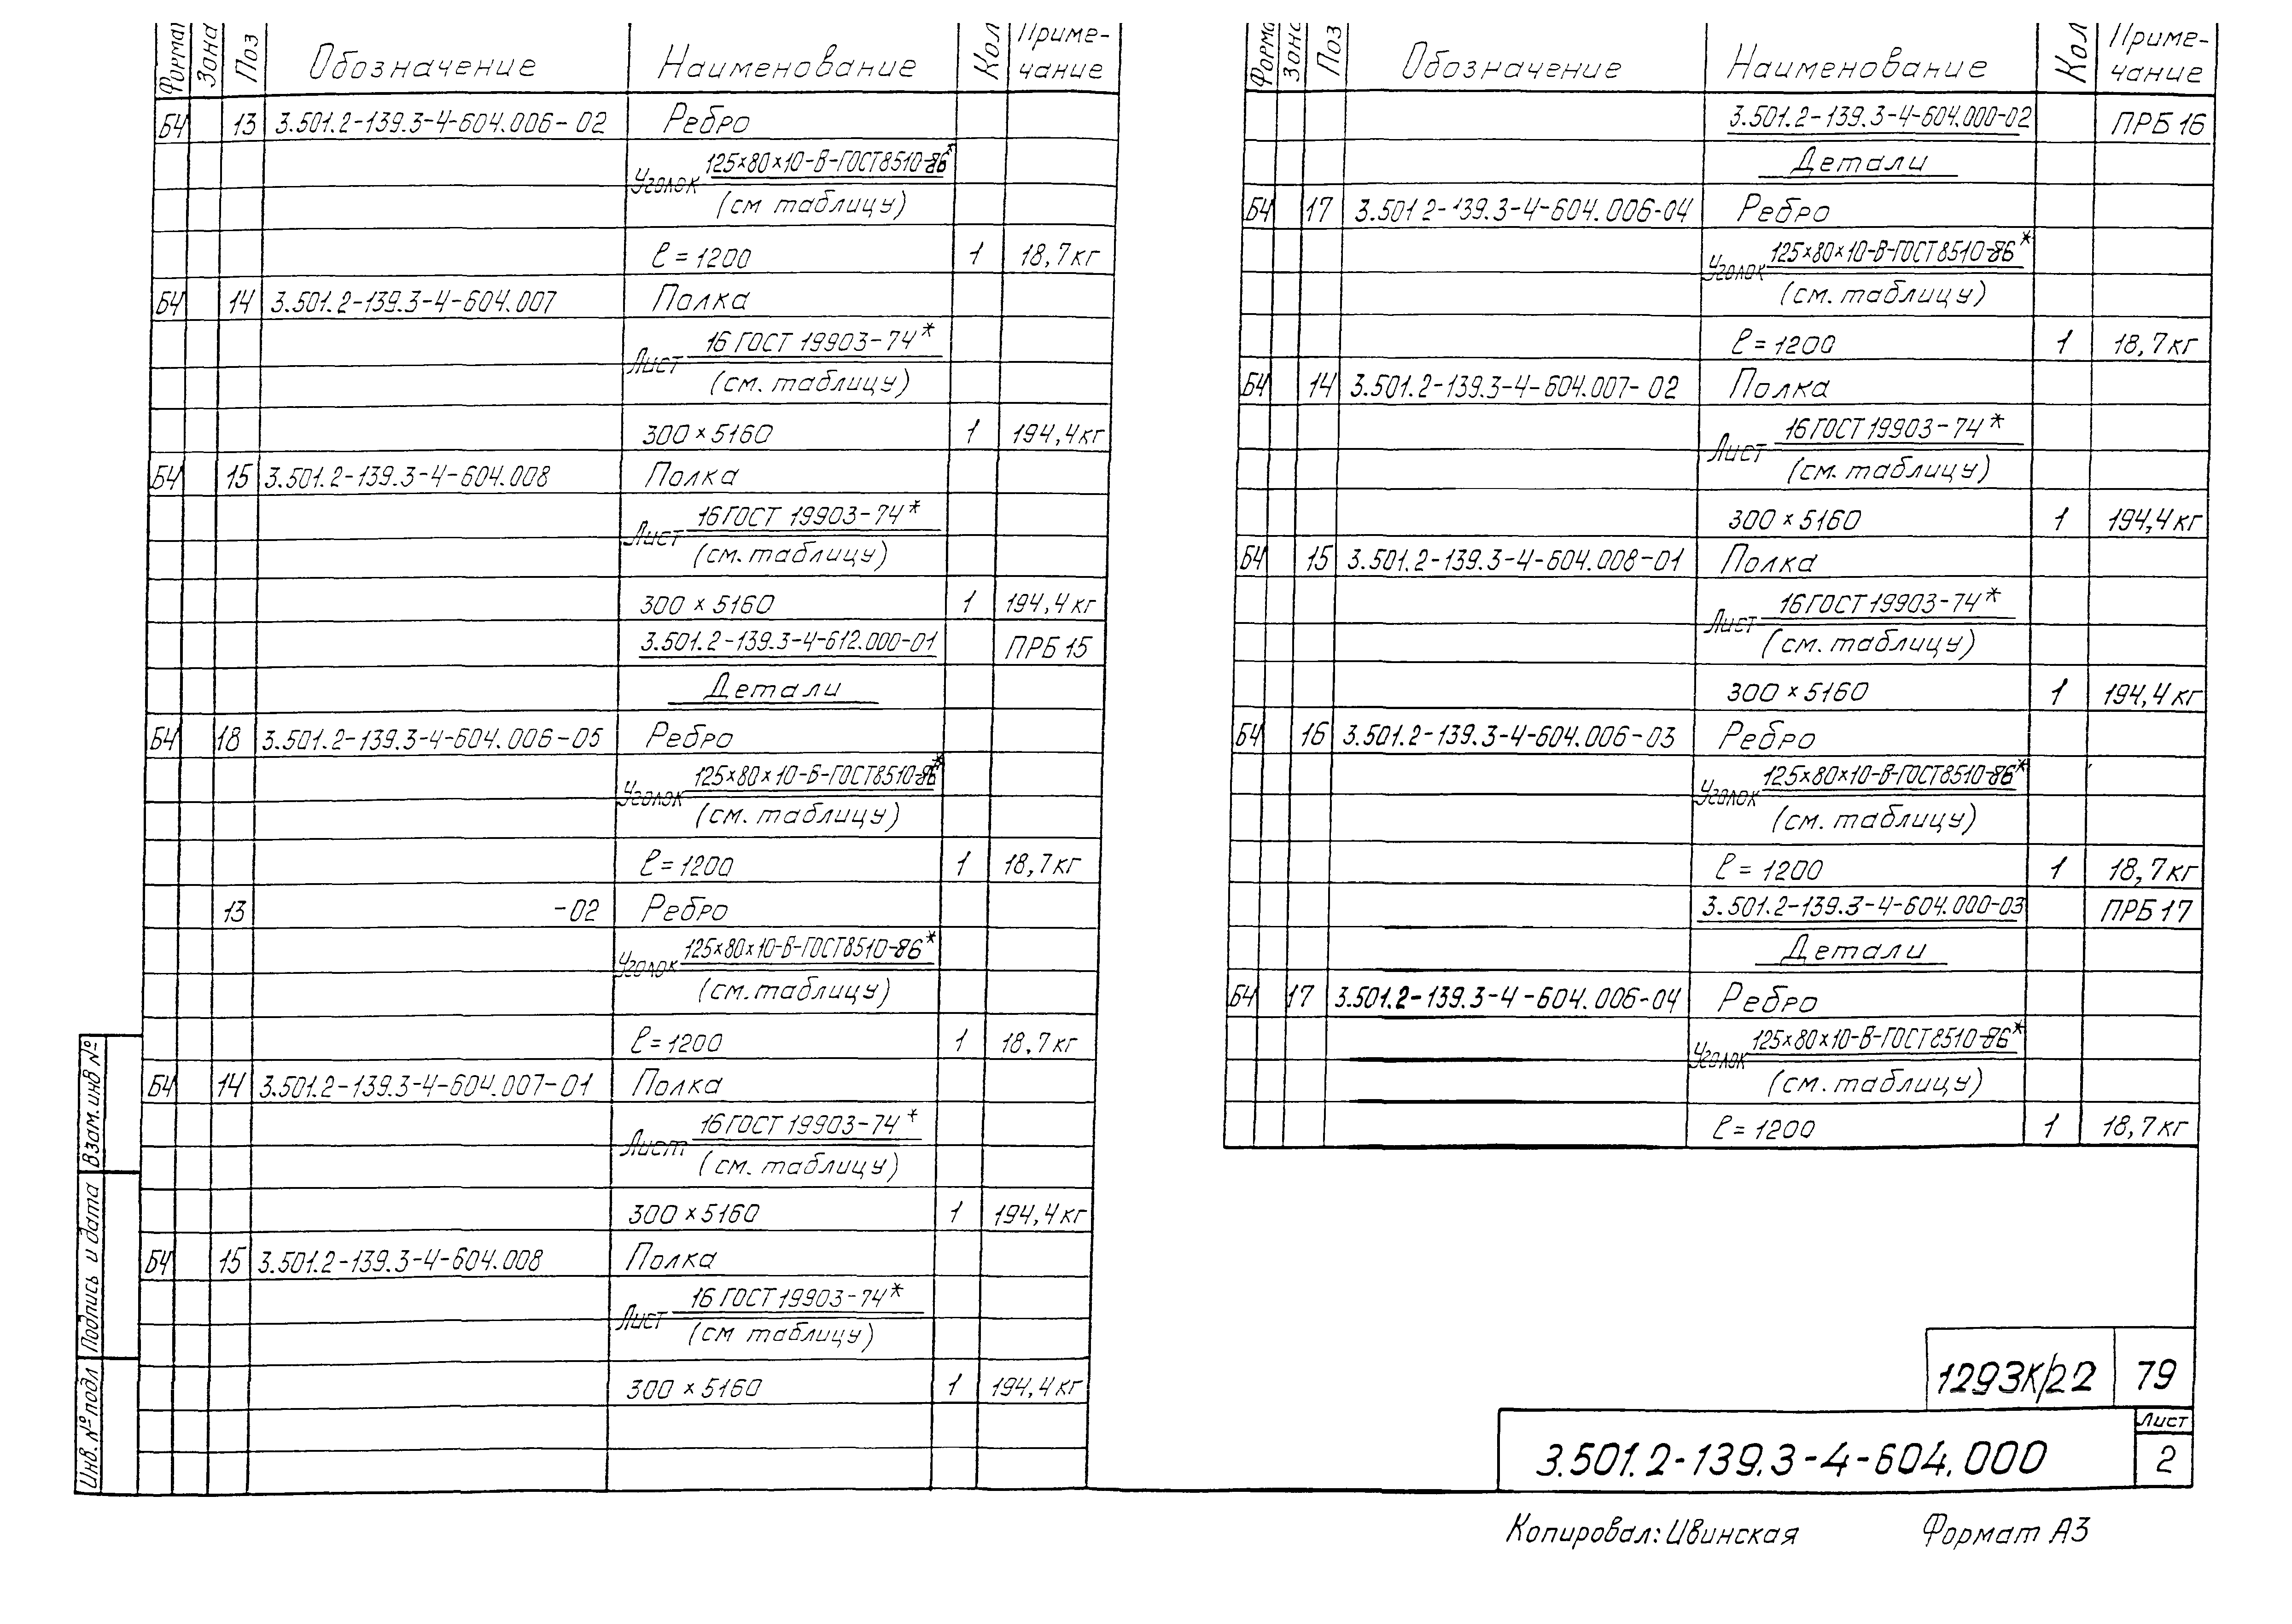 Форма Зона Поз Обозначение Наименование Кол Приме-
чание
Б4 13 3.501.2-139.3-4-604.006-02 Ребро
Уголок 125×80×10-В-ГОСТ8510-86*
(см таблицу)
ℓ=1200 1 18,7кг
Б4 14 3.501.2-139.3-4-604.007 Полка
Лист 16 ГОСТ 19903-74*
(см. таблицу)
300×5160 1 194,4кг
Б4 15 3.501.2-139.3-4-604.008 Полка
Лист 16 ГОСТ 19903-74*
(см. таблицу)
300×5160 1 194,4кг
3.501.2-139.3-4-612.000-01 ПРБ 15
Детали
Б4 18 3.501.2-139.3-4-604.006-05 Ребро
Уголок 125×80×10-Б-ГОСТ8510-86*
(см. таблицу)
ℓ=1200 1 18,7кг
13 -02 Ребро
Уголок 125×80×10-В-ГОСТ8510-86*
(см. таблицу)
ℓ=1200 1 18,7кг
Б4 14 3.501.2-139.3-4-604.007-01 Полка
Лист 16 ГОСТ 19903-74*
(см. таблицу)
300×5160 1 194,4кг
Б4 15 3.501.2-139.3-4-604.008 Полка
Лист 16 ГОСТ 19903-74*
(см таблицу)
300×5160 1 194,4кг
Взам.инв №
Подпись и дата
Инв. № подл
Форма Зона Поз Обозначение Наименование Кол Приме-
чание
3.501.2-139.3-4-604.000-02 ПРБ 16
Детали
Б4 17 3.501 2-139.3-4-604.006-04 Ребро
Уголок 125×80×10-В-ГОСТ8510-86*
(см. таблицу)
ℓ=1200 1 18,7кг
Б4 14 3.501.2-139.3-4-604.007-02 Полка
Лист 16 ГОСТ 19903-74*
(см. таблицу)
300×5160 1 194,4кг
Б4 15 3.501.2-139.3-4-604.008-01 Полка
Лист 16 ГОСТ 19903-74*
(см. таблицу)
300×5160 1 194,4кг
Б4 16 3.501.2-139.3-4-604.006-03 Ребро
Уголок 125×80×10-В-ГОСТ8510-86*
(см. таблицу)
ℓ=1200 1 18,7кг
3.501.2-139.3-4-604.000-03 ПРБ 17
Детали
Б4 17 3.501.2-139.3-4-604.006-04 Ребро
Уголок 125×80×10-В-ГОСТ8510-86*
(см. таблицу)
ℓ=1200 1 18,7кг
1293К/22 79
3.501.2-139.3-4-604.000 Лист
2
Копировал: Ивинская Формат А3